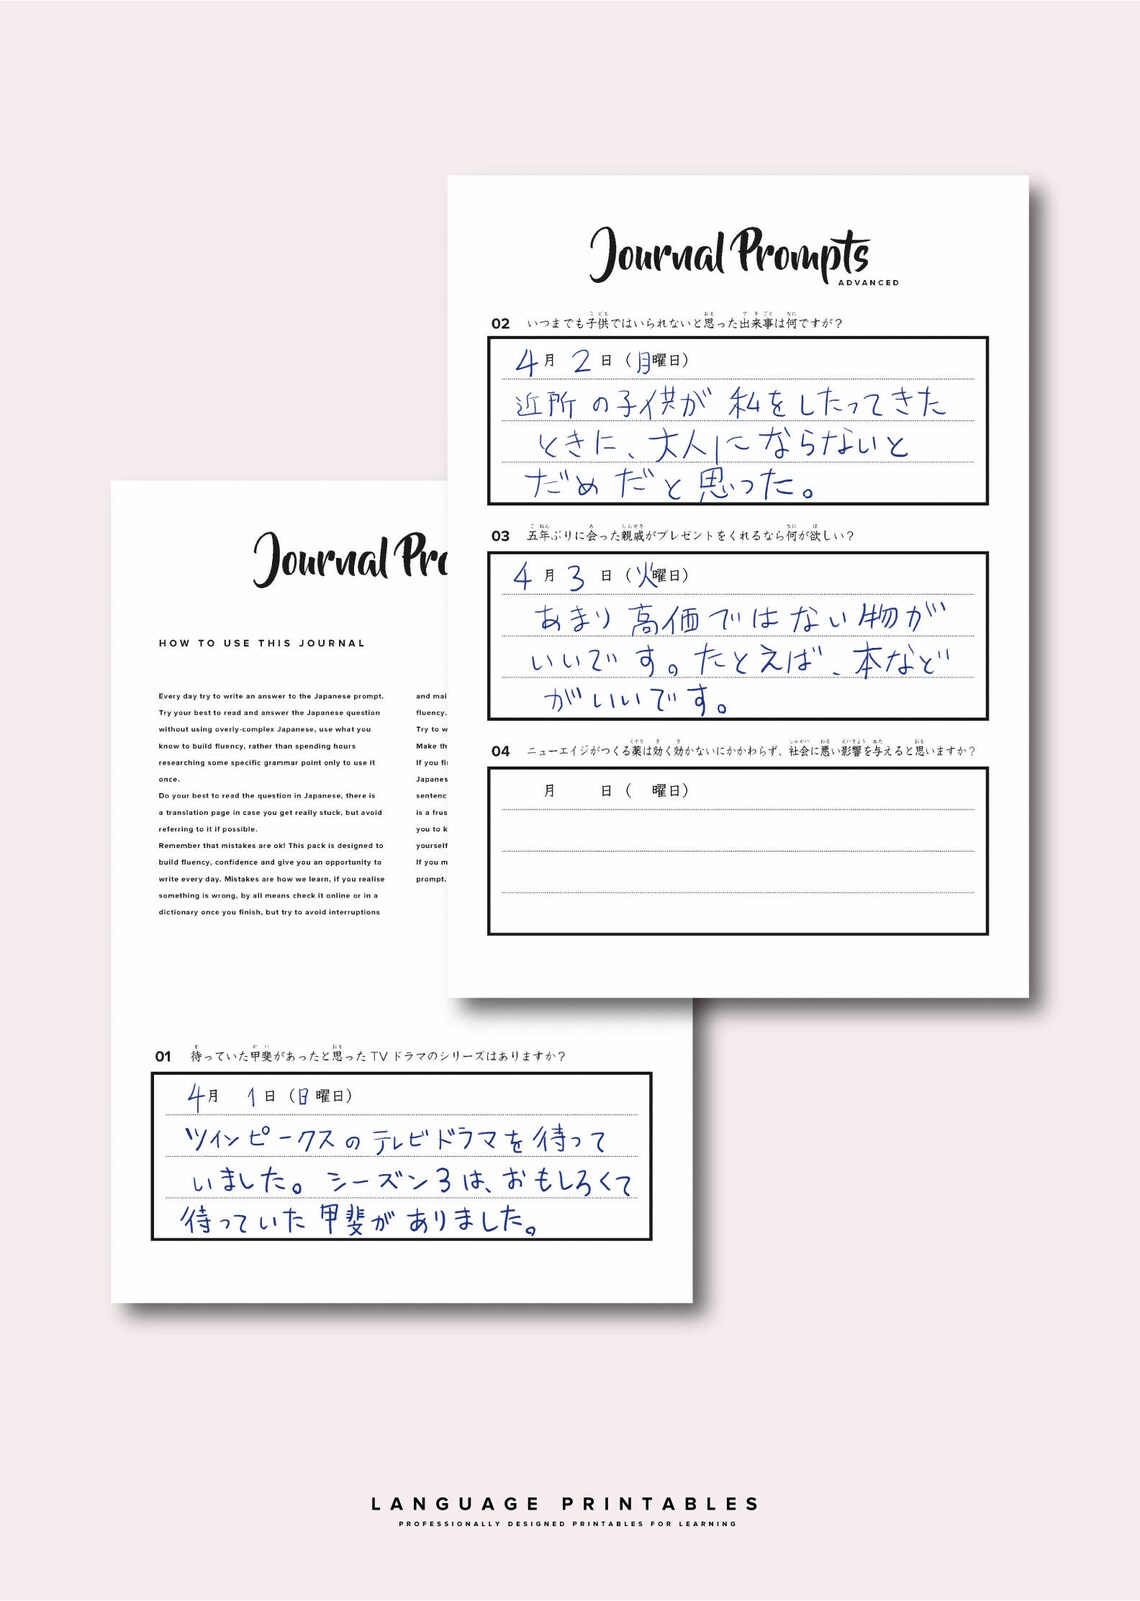 Journal Prompts
ADVANCED
02 いつまでも子供ではいられないと思った出来事は何ですが？
4月 2日（月曜日）
近所の子供が 私をしたってきた
ときに、大人にならないと
だめだと思った。
03 五年ぶりに会った親戚がプレゼントをくれるなら何が欲しい？
4月 3日（火曜日）
あまり高価ではない物が
いいです。たとえば、本など
がいいです。
04 ニューエイジがつくる薬は効く効かないにかかわらず、社会に悪い影響を与えると思いますか？
月 日（ 曜日）
Journal Pro
HOW TO USE THIS JOURNAL
Every day try to write an answer to the Japanese prompt.
Try your best to read and answer the Japanese question
without using overly-complex Japanese, use what you
know to build fluency, rather than spending hours
researching some specific grammar point only to use it
once.
Do your best to read the question in Japanese, there is
a translation page in case you get really stuck, but avoid
referring to it if possible.
Remember that mistakes are ok! This pack is designed to
build fluency, confidence and give you an opportunity to
write every day. Mistakes are how we learn, if you realise
something is wrong, by all means check it online or in a
dictionary once you finish, but try to avoid interruptions
and mai
fluency.
Try to w
Make th
If you fi
Japanes
sentenc
is a frus
you to k
yourself
If you m
prompt.
01 待っていた甲斐があったと思ったTVドラマのシリーズはありますか？
4月 1日（日曜日）
ツインピークスのテレビドラマを待って
いました。シーズン3は、おもしろくて
待っていた甲斐がありました。
LANGUAGE PRINTABLES
PROFESSIONALLY DESIGNED PRINTABLES FOR LEARNING